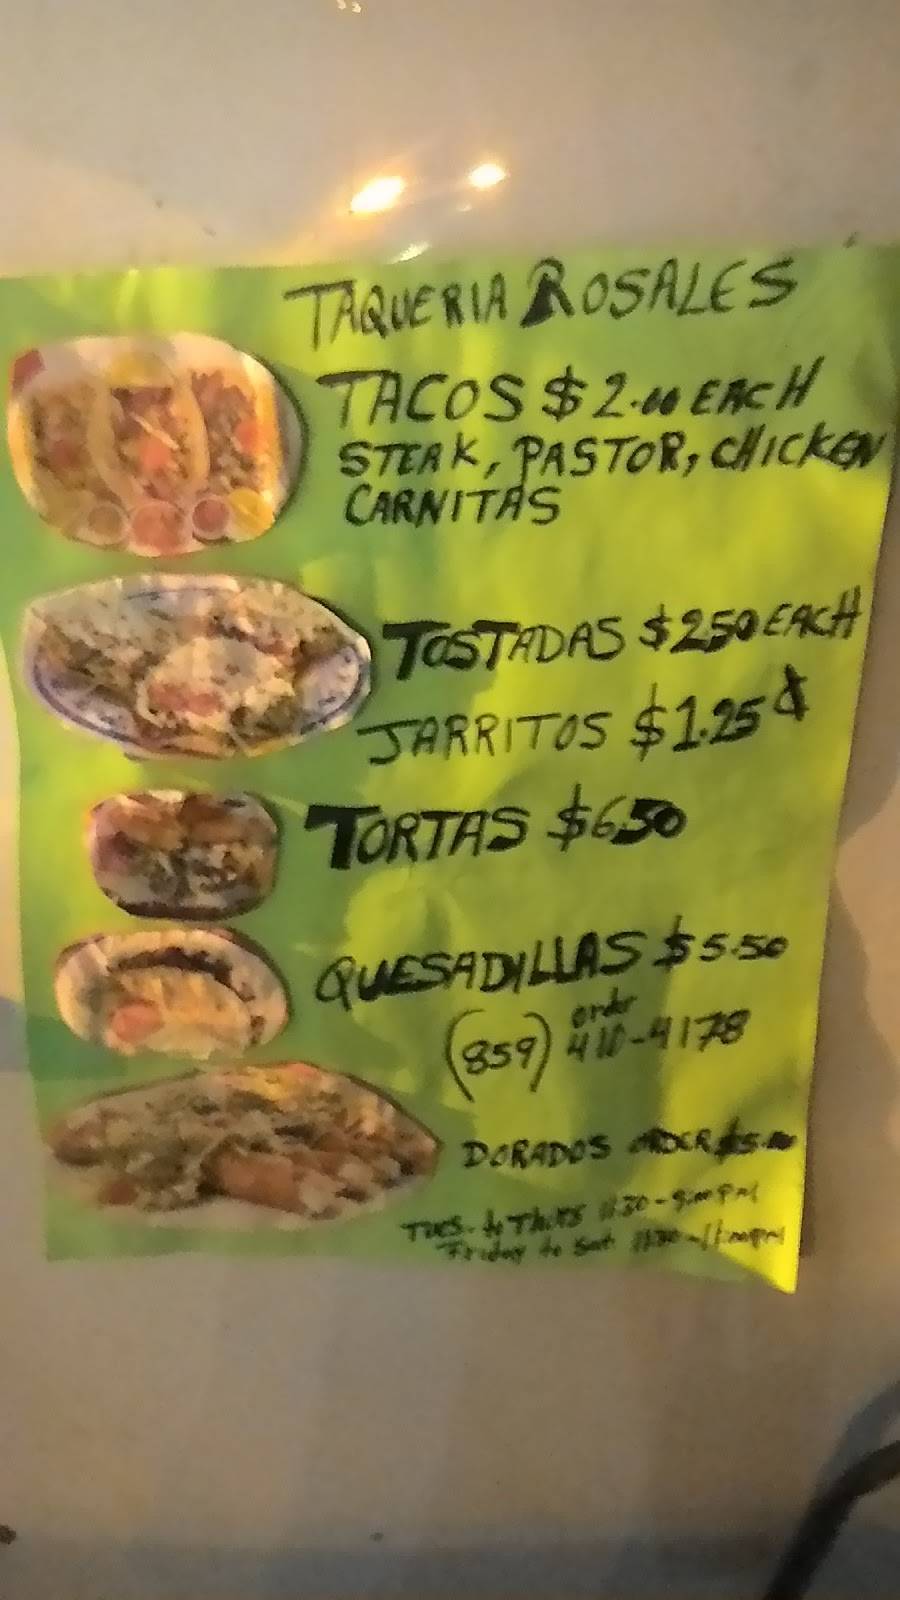 TAQUERIA ROSALES
TACOS $2.00 EACH
STEAK, PASTOR, CHICKEN
CARNITAS
TOSTADAS $250 EACH
JARRITOS $1.25 ¢
TORTAS $6.50
QUESADILLAS $5.50
order
(859) 410-4178
DORADOS ORDER $5.00
TUES. to THURS 11:30-9:00PM
Friday to Sat. 11:30-11:00PM